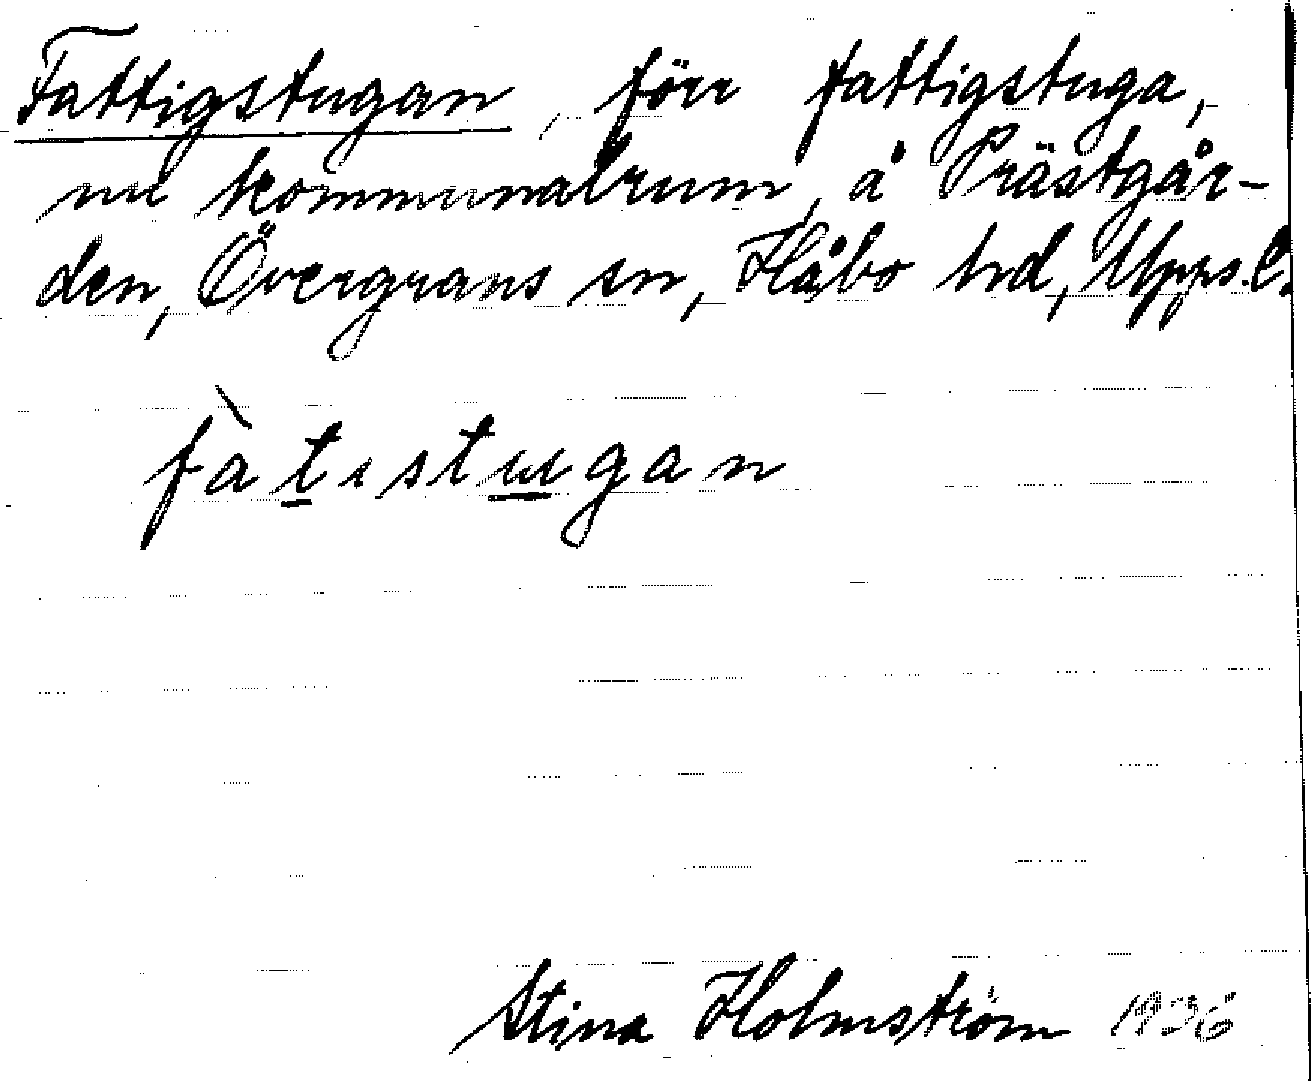 Fattigstugan, förr fattigstuga,
nu kommunalrum, å Prästgår-
den, Övergrans sn, Håbo hd, Upps. l.
fàtistugan
Stina Holmström 1936